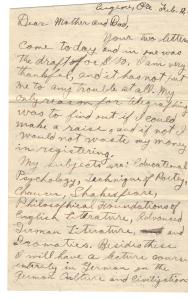 Eugene, Ore Feb. 12
Dear Mother and Dad,
Your two letters
come today and in one was
the draft for $ 80. I am very
thankful, and it has not put
me to any trouble at all. My
only reason for telegraphing
was to find out if I could
make a raise, and if not I
would not waste my money
in registering.
My subjects are: Educational
Psychology, Technique of Poetry,
Chaucer, Shakespeare,
Philosophical Foundations of
English Literature, Advanced
German Literature, and
Dramatics. Besides these
I will have a lecture course
entirely in German on the
German Culture and Civilization